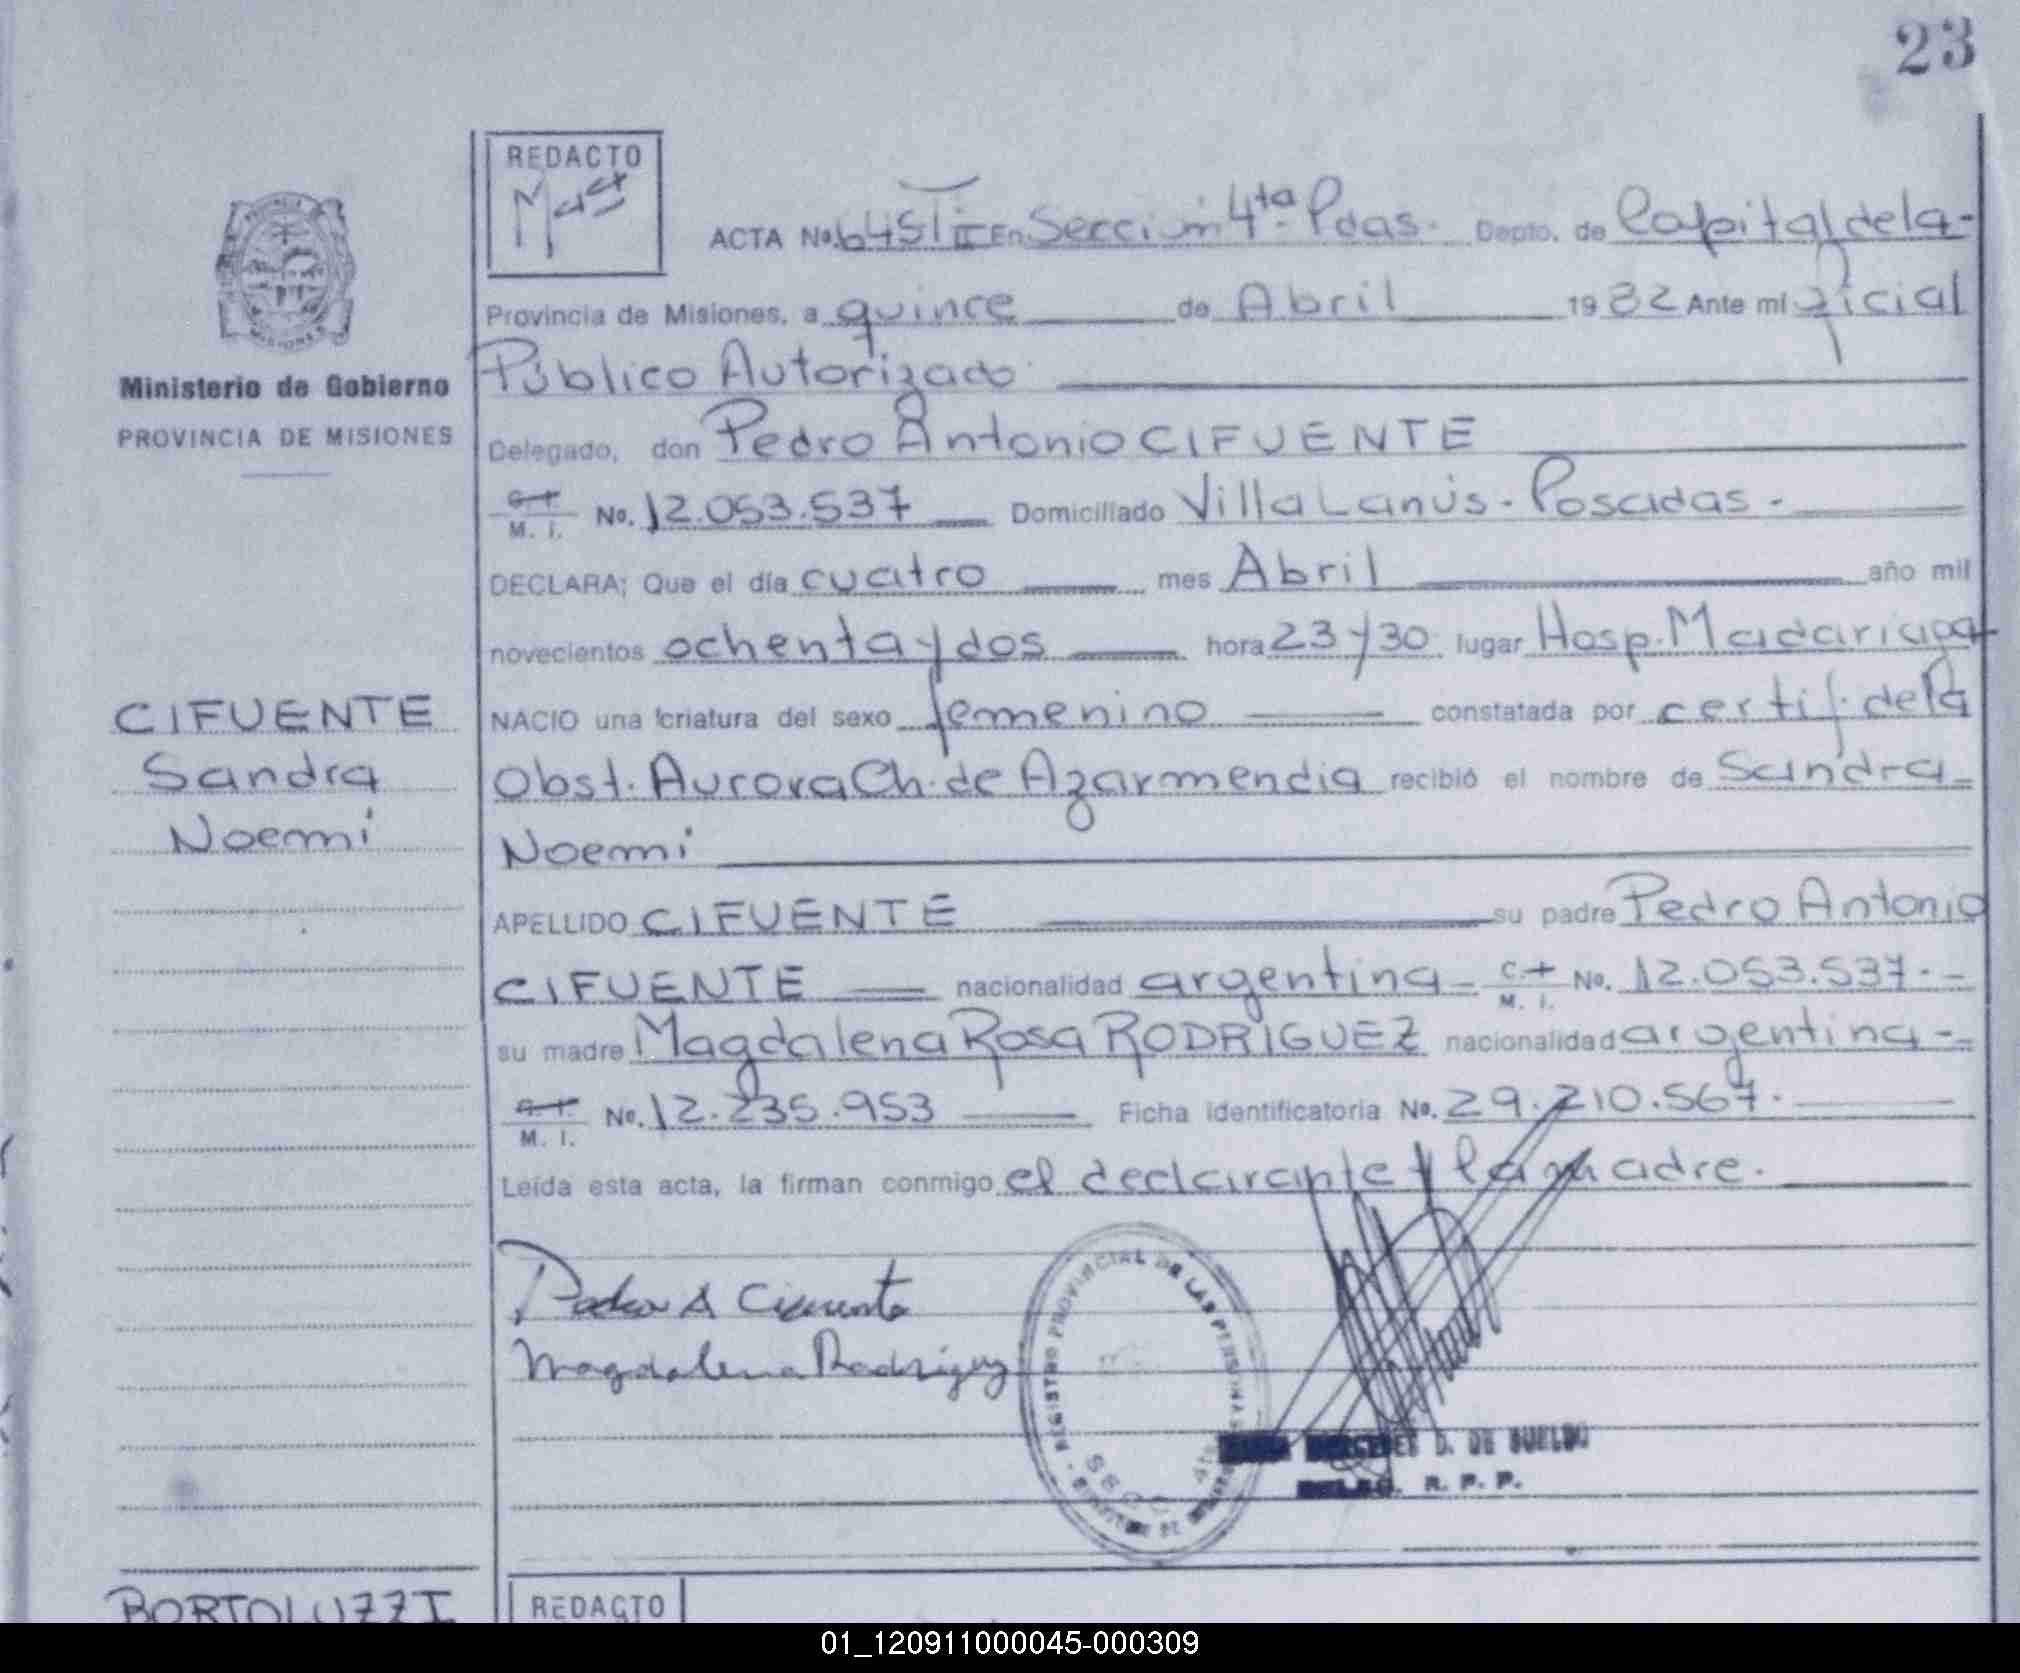 23
REDACTO
ACTA No. 645 T II En Sección 4ta. Pdas. Depto. de Capital de la-
Provincia de Misiones, a quince de Abril 1982 Ante mi oficial
Público Autorizado
Delegado, don Pedro Antonio CIFUENTE
C.I. M. I. No. 12.053.537 Domiciliado Villa Lanús - Posadas -
DECLARA; Que el día cuatro mes Abril año mil
novecientos ochenta y dos hora 23 y 30 lugar Hosp. Madariaga
NACIO una criatura del sexo femenino constatada por certif. de la
Obst. Aurora Ch. de Azarmendia recibió el nombre de Sandra-
Noemi
APELLIDO CIFUENTE su padre Pedro Antonio
CIFUENTE nacionalidad argentina - C.I. M. I. No. 12.053.537.-
su madre Magdalena Rosa RODRIGUEZ nacionalidad argentina -
C.I. M. I. No. 12.235.953 Ficha identificatoria No. 29.210.567.
Leída esta acta, la firman conmigo el declarante y la madre.
Pedro A Cifuente
Magdalena Rodriguez
REGISTRO PROVINCIAL DE LAS PERSONAS
MERCEDES D. DE SUELDO
DELEG. R. P. P.
PROVINCIA
MISIONES
Ministerio de Gobierno
PROVINCIA DE MISIONES
CIFUENTE
Sandra
Noemi
BORTOLUZZI
REDACTO
01_120911000045-000309